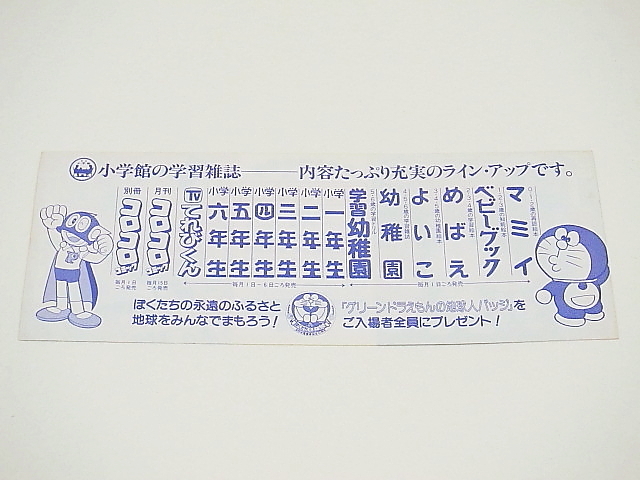 小学館の学習雑誌――内容たっぷり充実のライン・アップです。
マミイ
ベビーブック
めばえ
よいこ
幼稚園
学習幼稚園
小学一年生
小学二年生
小学三年生
小学四年生
小学五年生
小学六年生
TVてれびくん
月刊コロコロコミック
別冊コロコロコミック
毎月1日ごろ発売
毎月1日~6日ごろ発売
毎月15日ごろ発売
毎月1日ごろ発売
ぼくたちの永遠のふるさと
地球をみんなでまもろう!
「グリーンドラえもんの地球人バッジ」を
ご入場者全員にプレゼント!